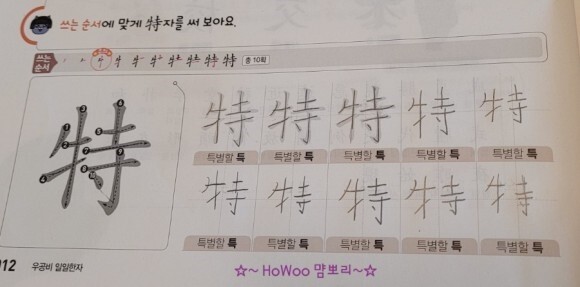 쓰는 순서에 맞게 特자를 써 보아요.
쓰는 순서
총 10획
特
1 2 3 4 5 6 7 8 9 10
特 特 特 特 特
특별할 특 특별할 특 특별할 특 특별할 특 특별할 특
特 特 特 特 特
특별할 특 특별할 특 특별할 특 특별할 특 특별할 특
012 우공비 일일한자
☆~ HoWoo 먐뽀리~☆